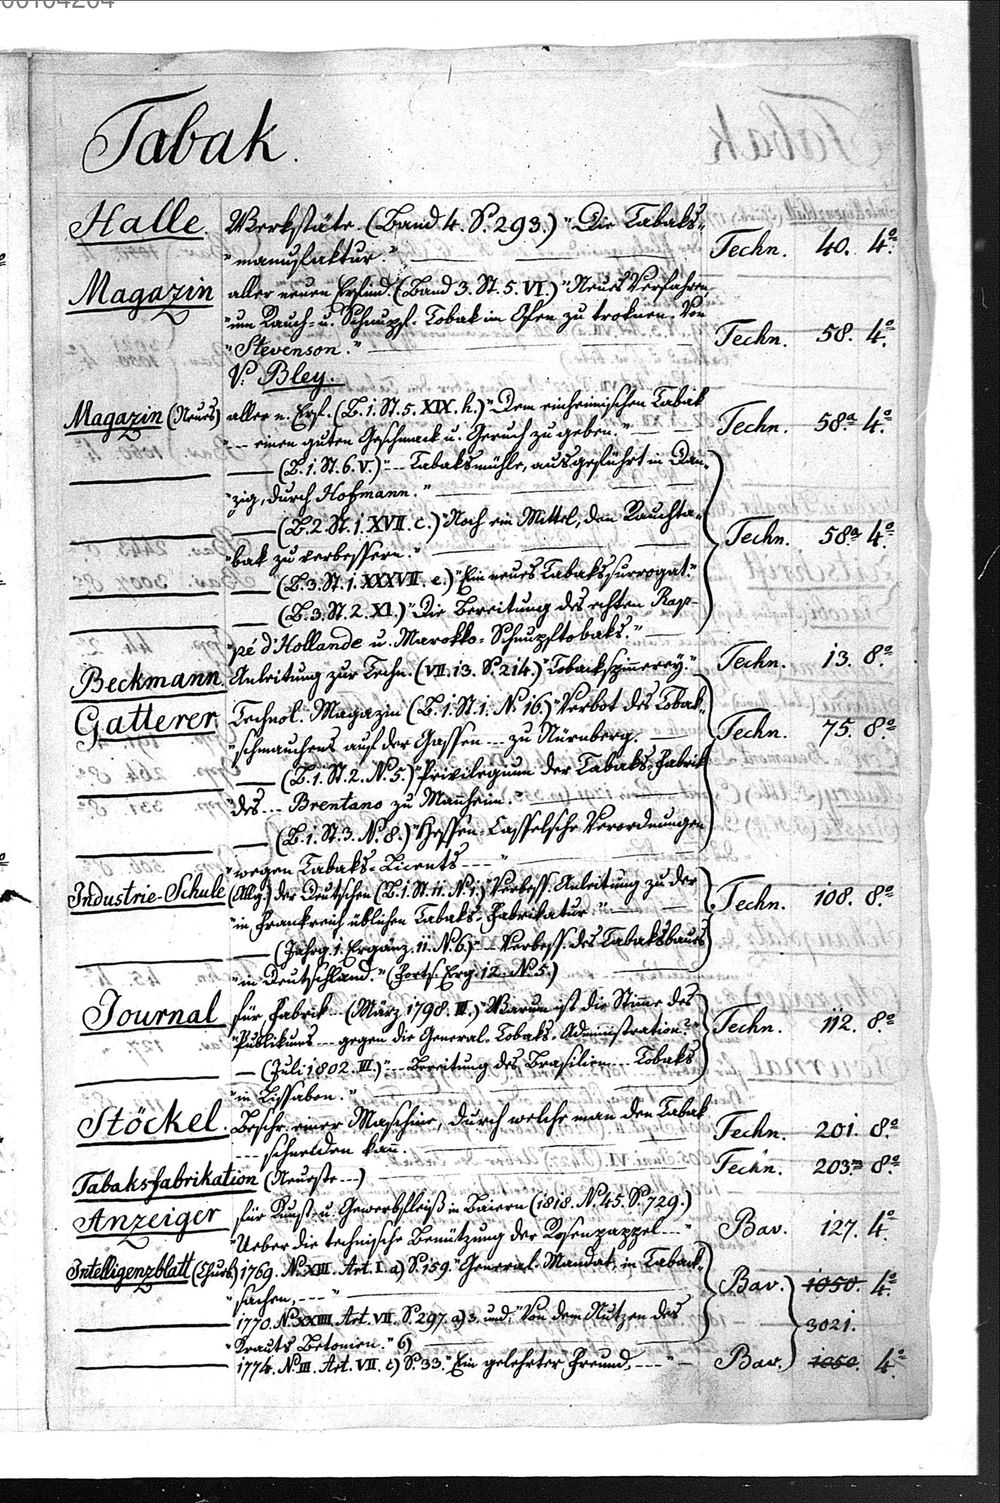 Tabak.
Halle. Werkstäte (Band 4. S. 293.) "Die Tabaks-
"manufaktur." Techn. 40. 4º
Magazin aller neuen Erfind. (Band 3. St. 5. VI.) "Neues Verfahren,
"um Rauch- u. Schnupf-Tobak in Ofen zu troknen. Von
"Stevenson." Techn. 58. 4º
V. Bley.
Magazin (Neues) aller n. Erf. (B. 1. St. 5. XIX. h.) "Dem einheimischen Tabak
"-- einen guten Geschmack u. Geruch zu geben." Techn. 58ª 4º
— (B. 1. St. 6. V.) "-- Tabaksmühle, ausgeführt in Dan-
"zig, durch Hofmann."
— (B. 2. St. 1. XVII. c.) "Noch ein Mittel, den Rauchta-
"bak zu verbessern." Techn. 58ª 4º
— (B. 3. St. 1. XXXVII. e.) "Ein neues Tabakssurrogat."
— (B. 3. St. 2. XI.) "Die Bereitung des echten Rap-
"pé d'Hollande u. Marokko-Schnupftobaks."
Beckmann. Anleitung zur Techn. (VII. 13. S. 214.) "Tobackspinnerey." Techn. 13. 8º
Gatterer. Technol. Magazin (B. 1. St. 1. N. 16.) "Verbot des Tobak-
"schmauchens auf der Gassen --- zu Nürnberg. Techn. 75. 8º
— (B. 1. St. 2. N. 5.) "Privilegium der Tabaks-Fabrik
"des --- Brentano zu Manheim.
— (B. 1. St. 3. N. 8.) "Hessen-Casselsche Verordnungen
"wegen Tabaks-Licents ---"
Industrie-Schule (Allg.) der Deutschen (B. 1. St. 11. N. 1.) "Verbess. Anleitung zu der
"in Frankreich üblichen Tabaks-Fabrikatur" Techn. 108. 8º
— (Jahrg. 1. Ergänz. 11. N. 6.) "-- Verbess. des Tabaksbaues
"in Deutschland." (Forts. Erg. 12. N. 5.)
Journal für Fabrik -- (März 1798. III.) "Warum ist die Stimme des
"Publikums --- gegen die General-Tobaks-Administration?" Techn. 112. 8º
— (Juli 1802. III.) "-- Bereitung des Brasilien --- Tobaks
"in Lissabon."
Stöckel. Beschr. einer Maschine, durch welche man den Tabak
--- schneiden kann. Techn. 201. 8º
Tabaksfabrikation (Neueste ---) Techn. 203m 8º
Anzeiger für Kunst- u. Gewerbfleiß in Baiern (1818. N. 45. S. 729.)
"Ueber die technische Benützung der Rosenpappel ---" Bav. 127. 4º
Intelligenzblatt (Churb.) 1769. N. XIII. Art. I. a) S. 159. "General-Mandat, in Taback-
"sachen, ---" Bav. 1050. 4º
1770. N. XXIII. Art. VII. S. 297. a) 3. und: "Von dem Nutzen des
"Krauts Betonien." 6) 3021.
1774. N. III. Art. VII. c) S. 33. "Ein gelehrter Freund, ---" Bav. 1050. 4º